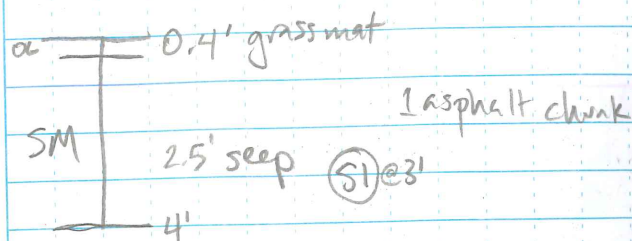 OL 0.4' grass mat
1 asphalt chunk
SM 2.5' seep S1 @ 3'
4'